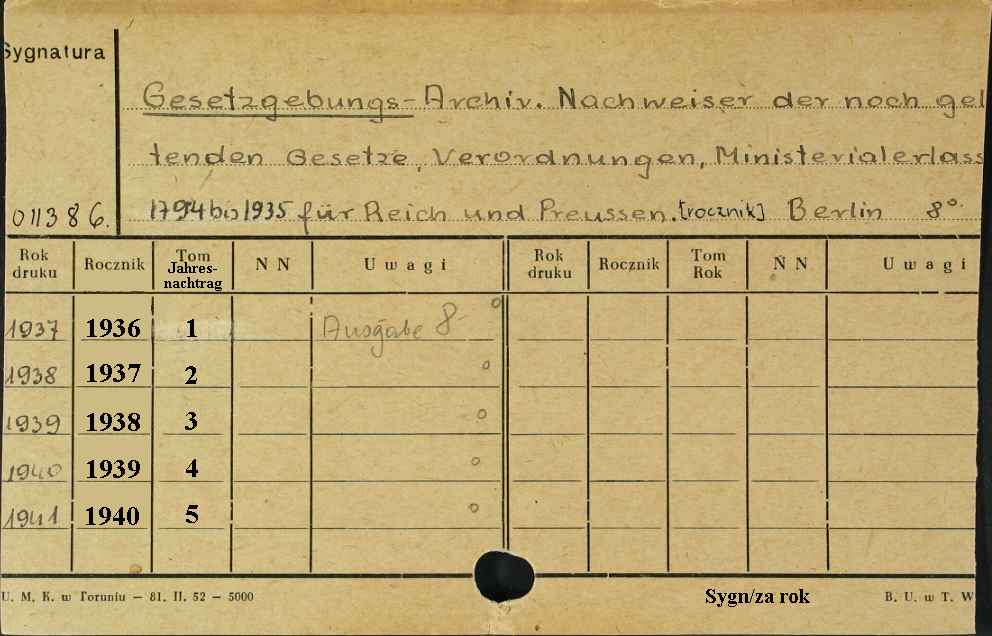 Sygnatura
Gesetzgebungs-Archiv. Nachweiser der noch gel
tenden Gesetze, Verordnungen, Ministerialerlass
011386. 1794 bis 1935 für Reich und Preussen. [rocznik] Berlin 8°.
Rok druku Rocznik Tom Jahres-nachtrag N N Uwagi Rok druku Rocznik Tom Rok N N Uwagi
1937 1936 1 Ausgabe 8-°
1938 1937 2 °
1939 1938 3 °
1940 1939 4 °
1941 1940 5 °
U. M. K. w Toruniu – 81. II. 52 – 5000 Sygn/za rok B. U. w T. W